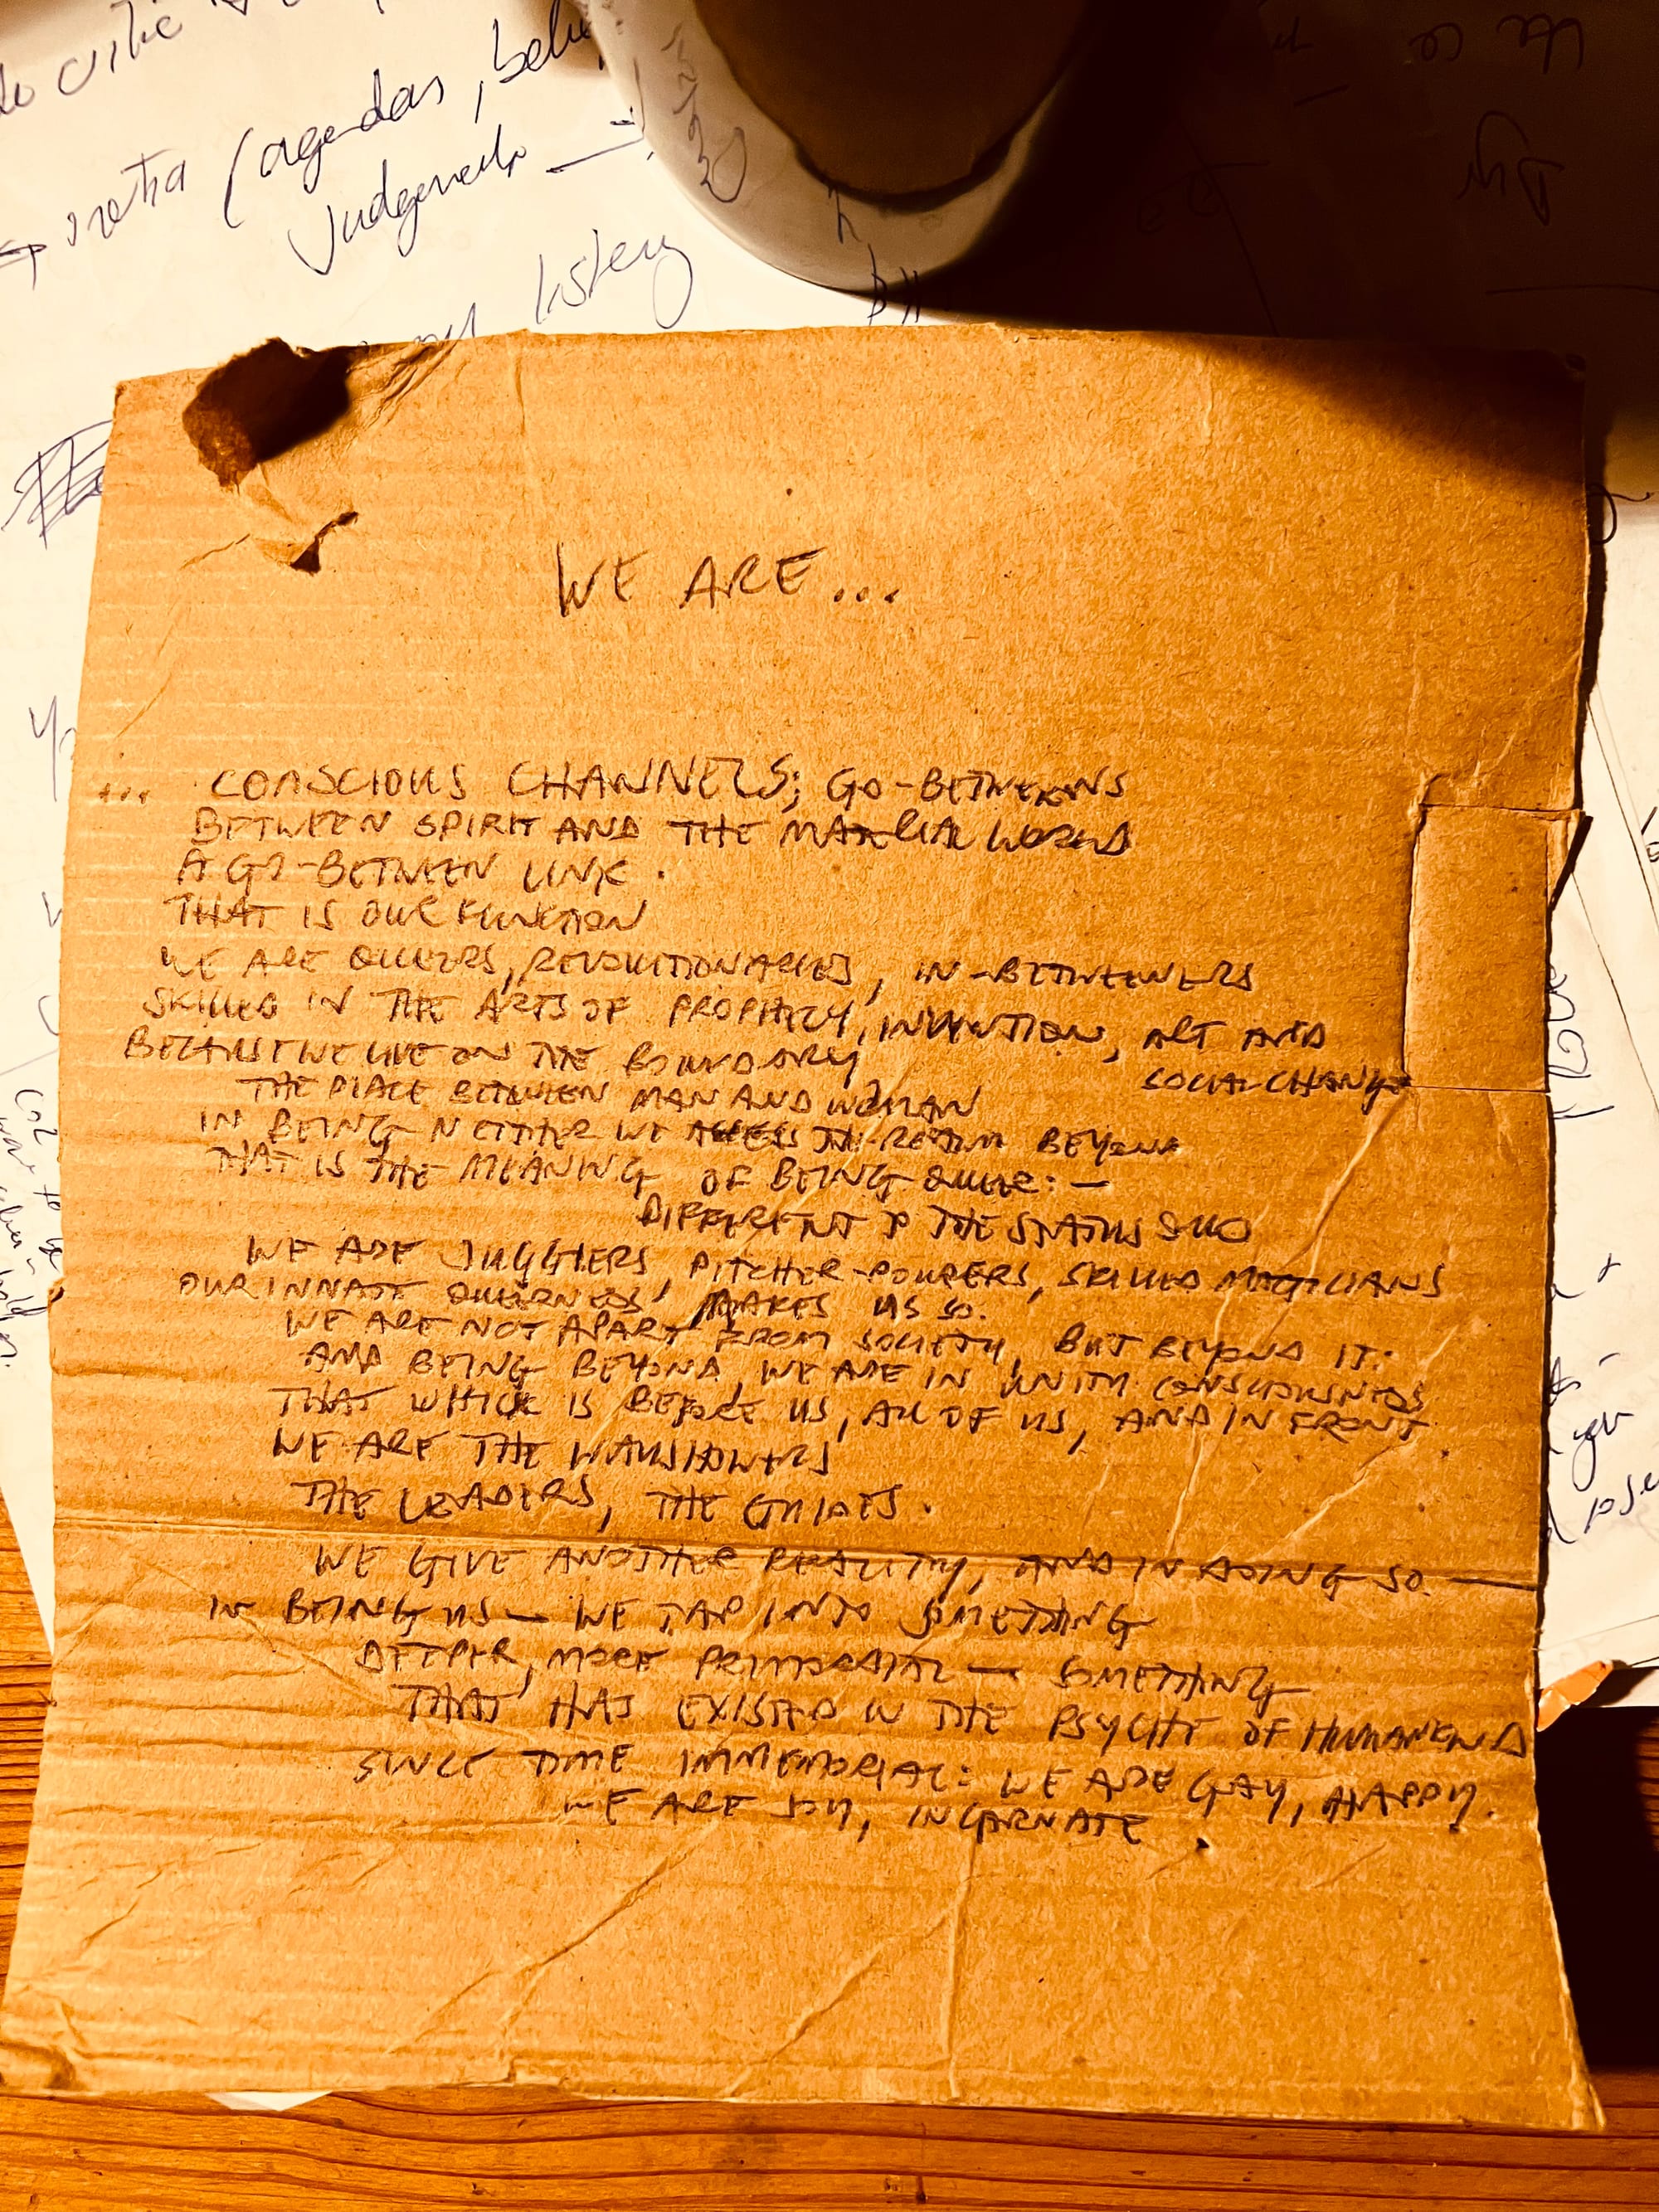 (agendas,
Judgements
WE ARE...
... CONSCIOUS CHANNELS; GO-BETWEENS
BETWEEN SPIRIT AND THE MATERIAL WORLD
A GO-BETWEEN LINK.
THAT IS OUR FUNCTION
WE ARE QUEERS, REVOLUTIONARIES, IN-BETWEENERS
SKILLED IN THE ARTS OF PROPHECY, INVENTION, ART AND
SOCIAL CHANGE
BECAUSE WE LIVE ON THE BOUNDARY
THE PLACE BETWEEN MAN AND WOMAN
IN BEING NEITHER WE ACCESS THE REALM BEYOND
THAT IS THE MEANING OF BEING QUEER: —
DIFFERENT TO THE STATUS QUO
WE ARE JUGGLERS, PITCHER-POURERS, SKILLED MAGICIANS
OUR INNATE QUEERNESS MAKES US SO.
WE ARE NOT APART FROM SOCIETY, BUT BEYOND IT:
AND BEING BEYOND, WE ARE IN UNITY CONSCIOUSNESS
THAT WHICH IS BEFORE US, ALL OF US, AND IN FRONT.
WE ARE THE WAYSHOWERS
THE LEADERS, THE GUIDES.
WE GIVE ANOTHER REALITY, AND IN DOING SO —
IN BEING US — WE TAP INTO SOMETHING
DEEPER, MORE PRIMORDIAL — SOMETHING
THAT HAS EXISTED IN THE PSYCHE OF HUMANKIND
SINCE TIME IMMEMORIAL: WE ARE GAY, HAPPY.
WE ARE JOY, INCARNATE.